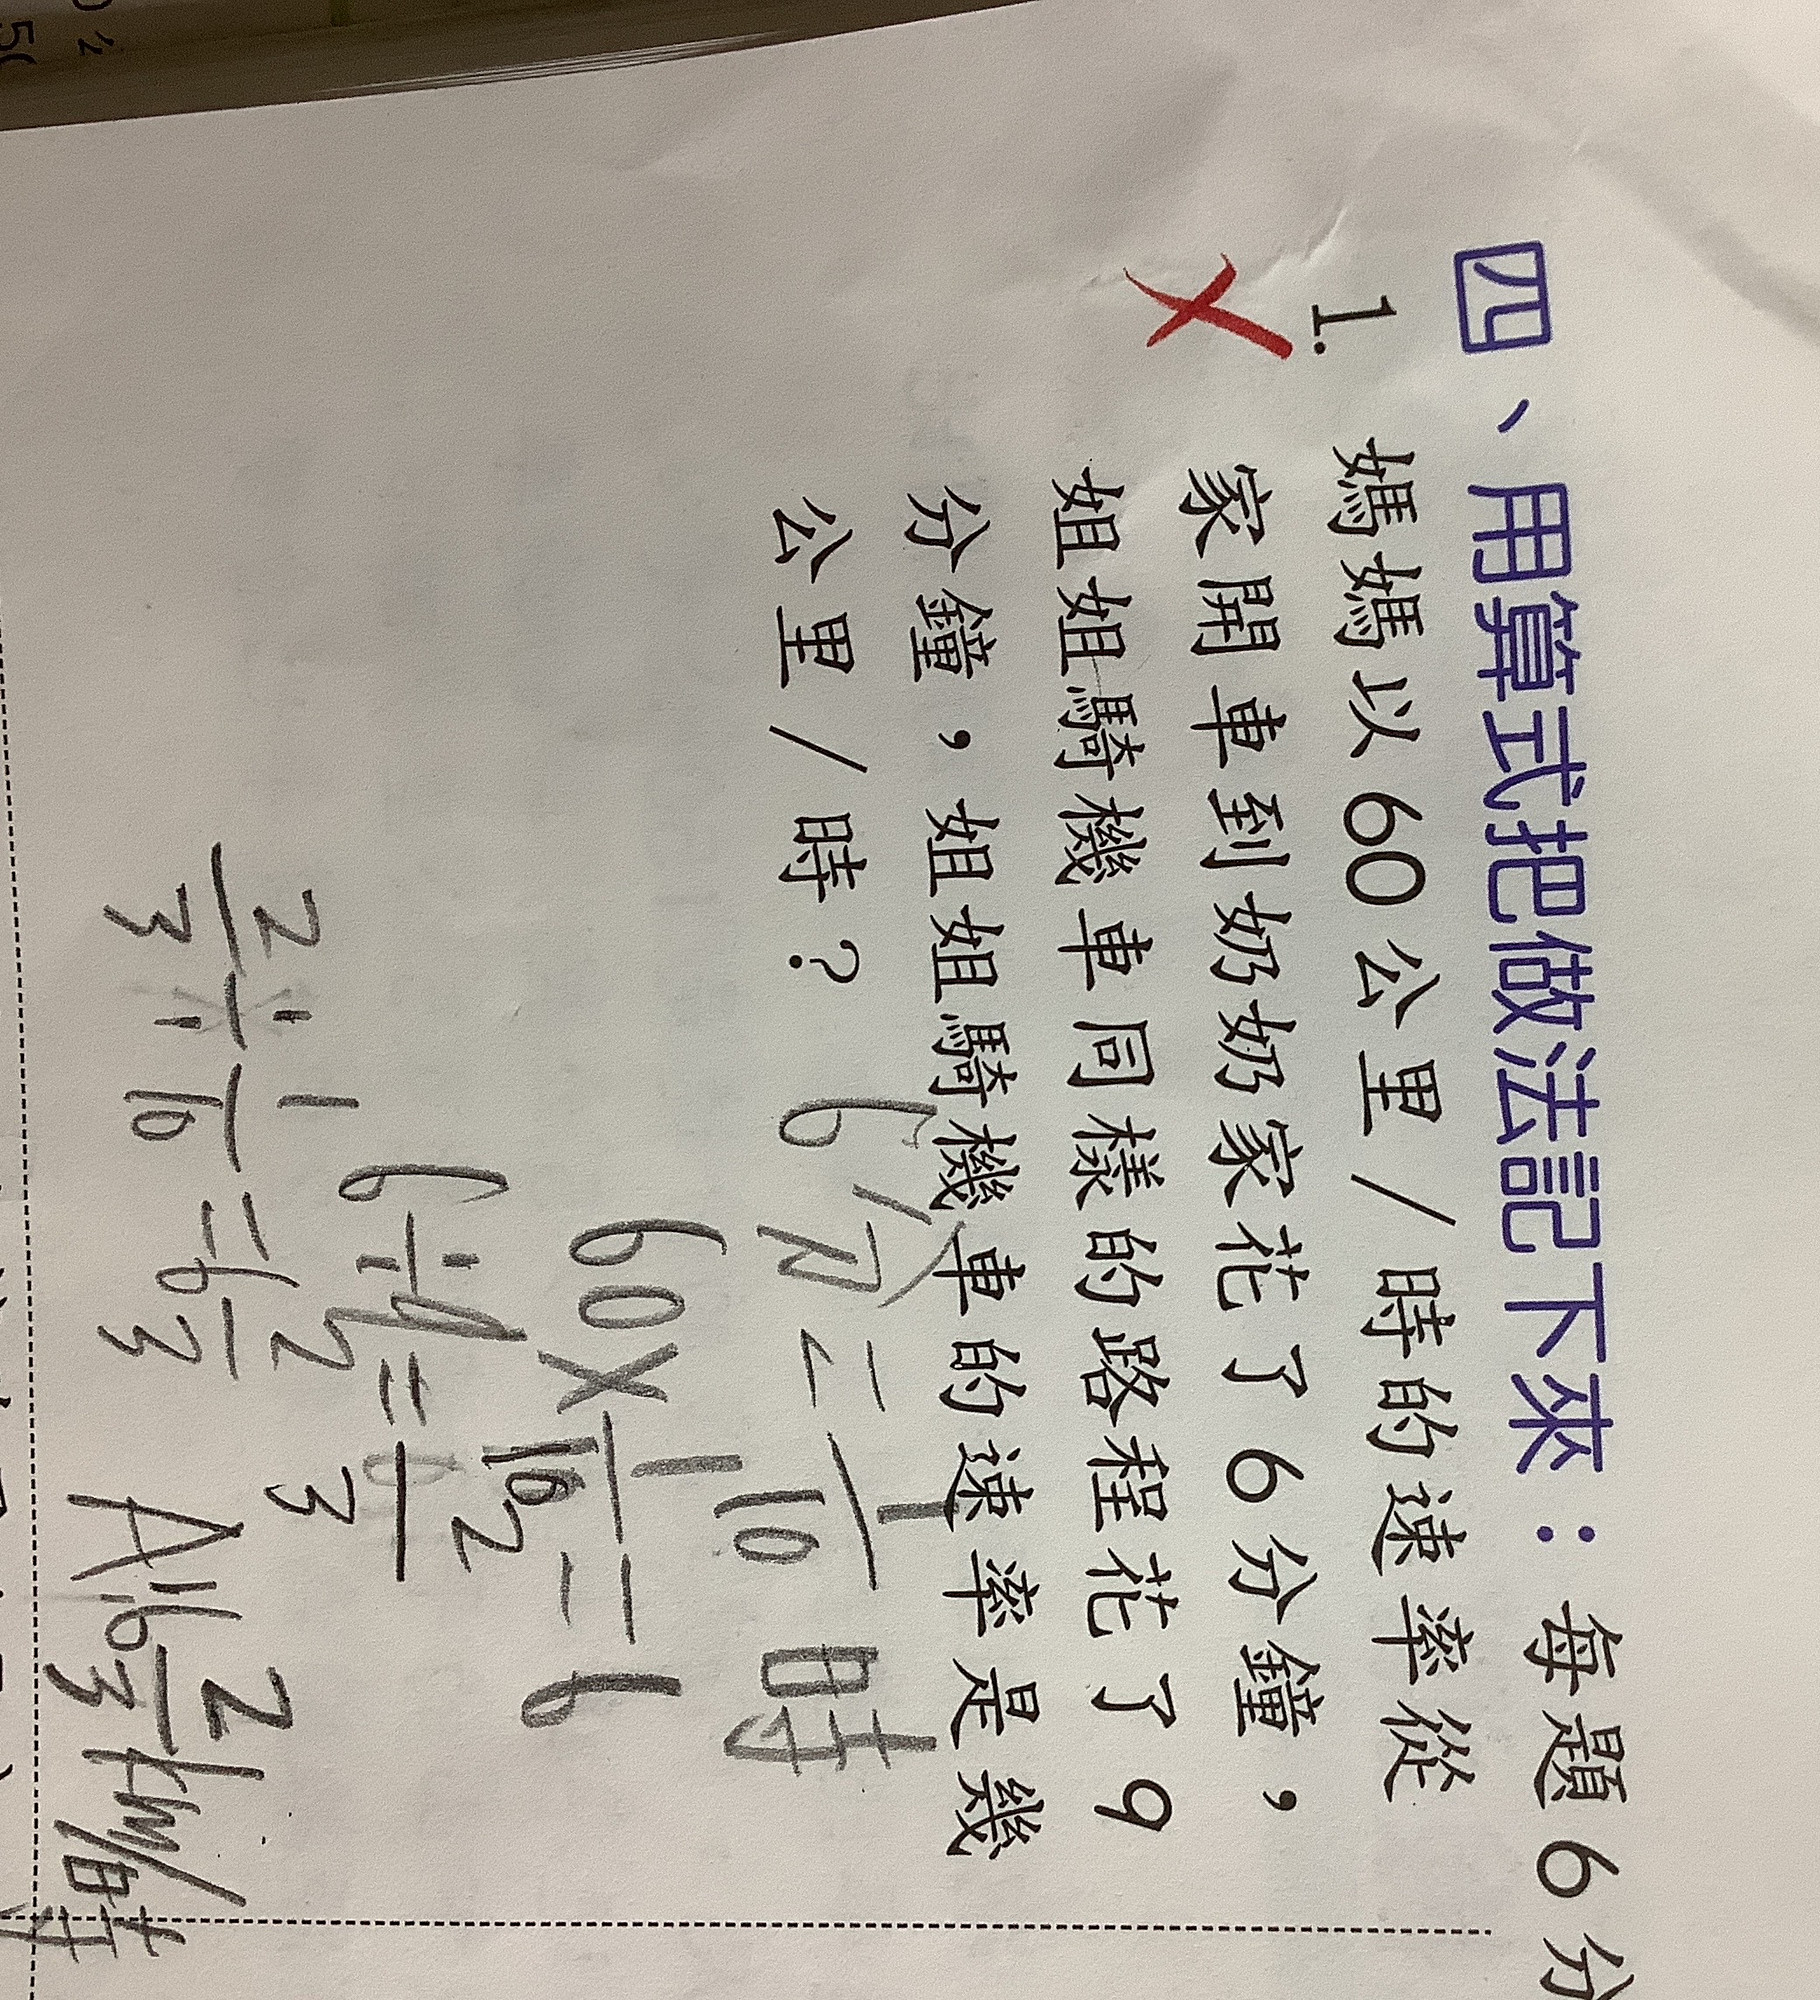 四、用算式把做法記下來：每題6分
1. 媽媽以60公里/時的速率從
家開車到奶奶家花了6分鐘，
姐姐騎機車同樣的路程花了9
分鐘，姐姐騎機車的速率是幾
公里/時？
6分=1/10時
60×1/10=6
6÷9=2/3
2/3÷1/10=6 2/3
A:6 2/3km/時